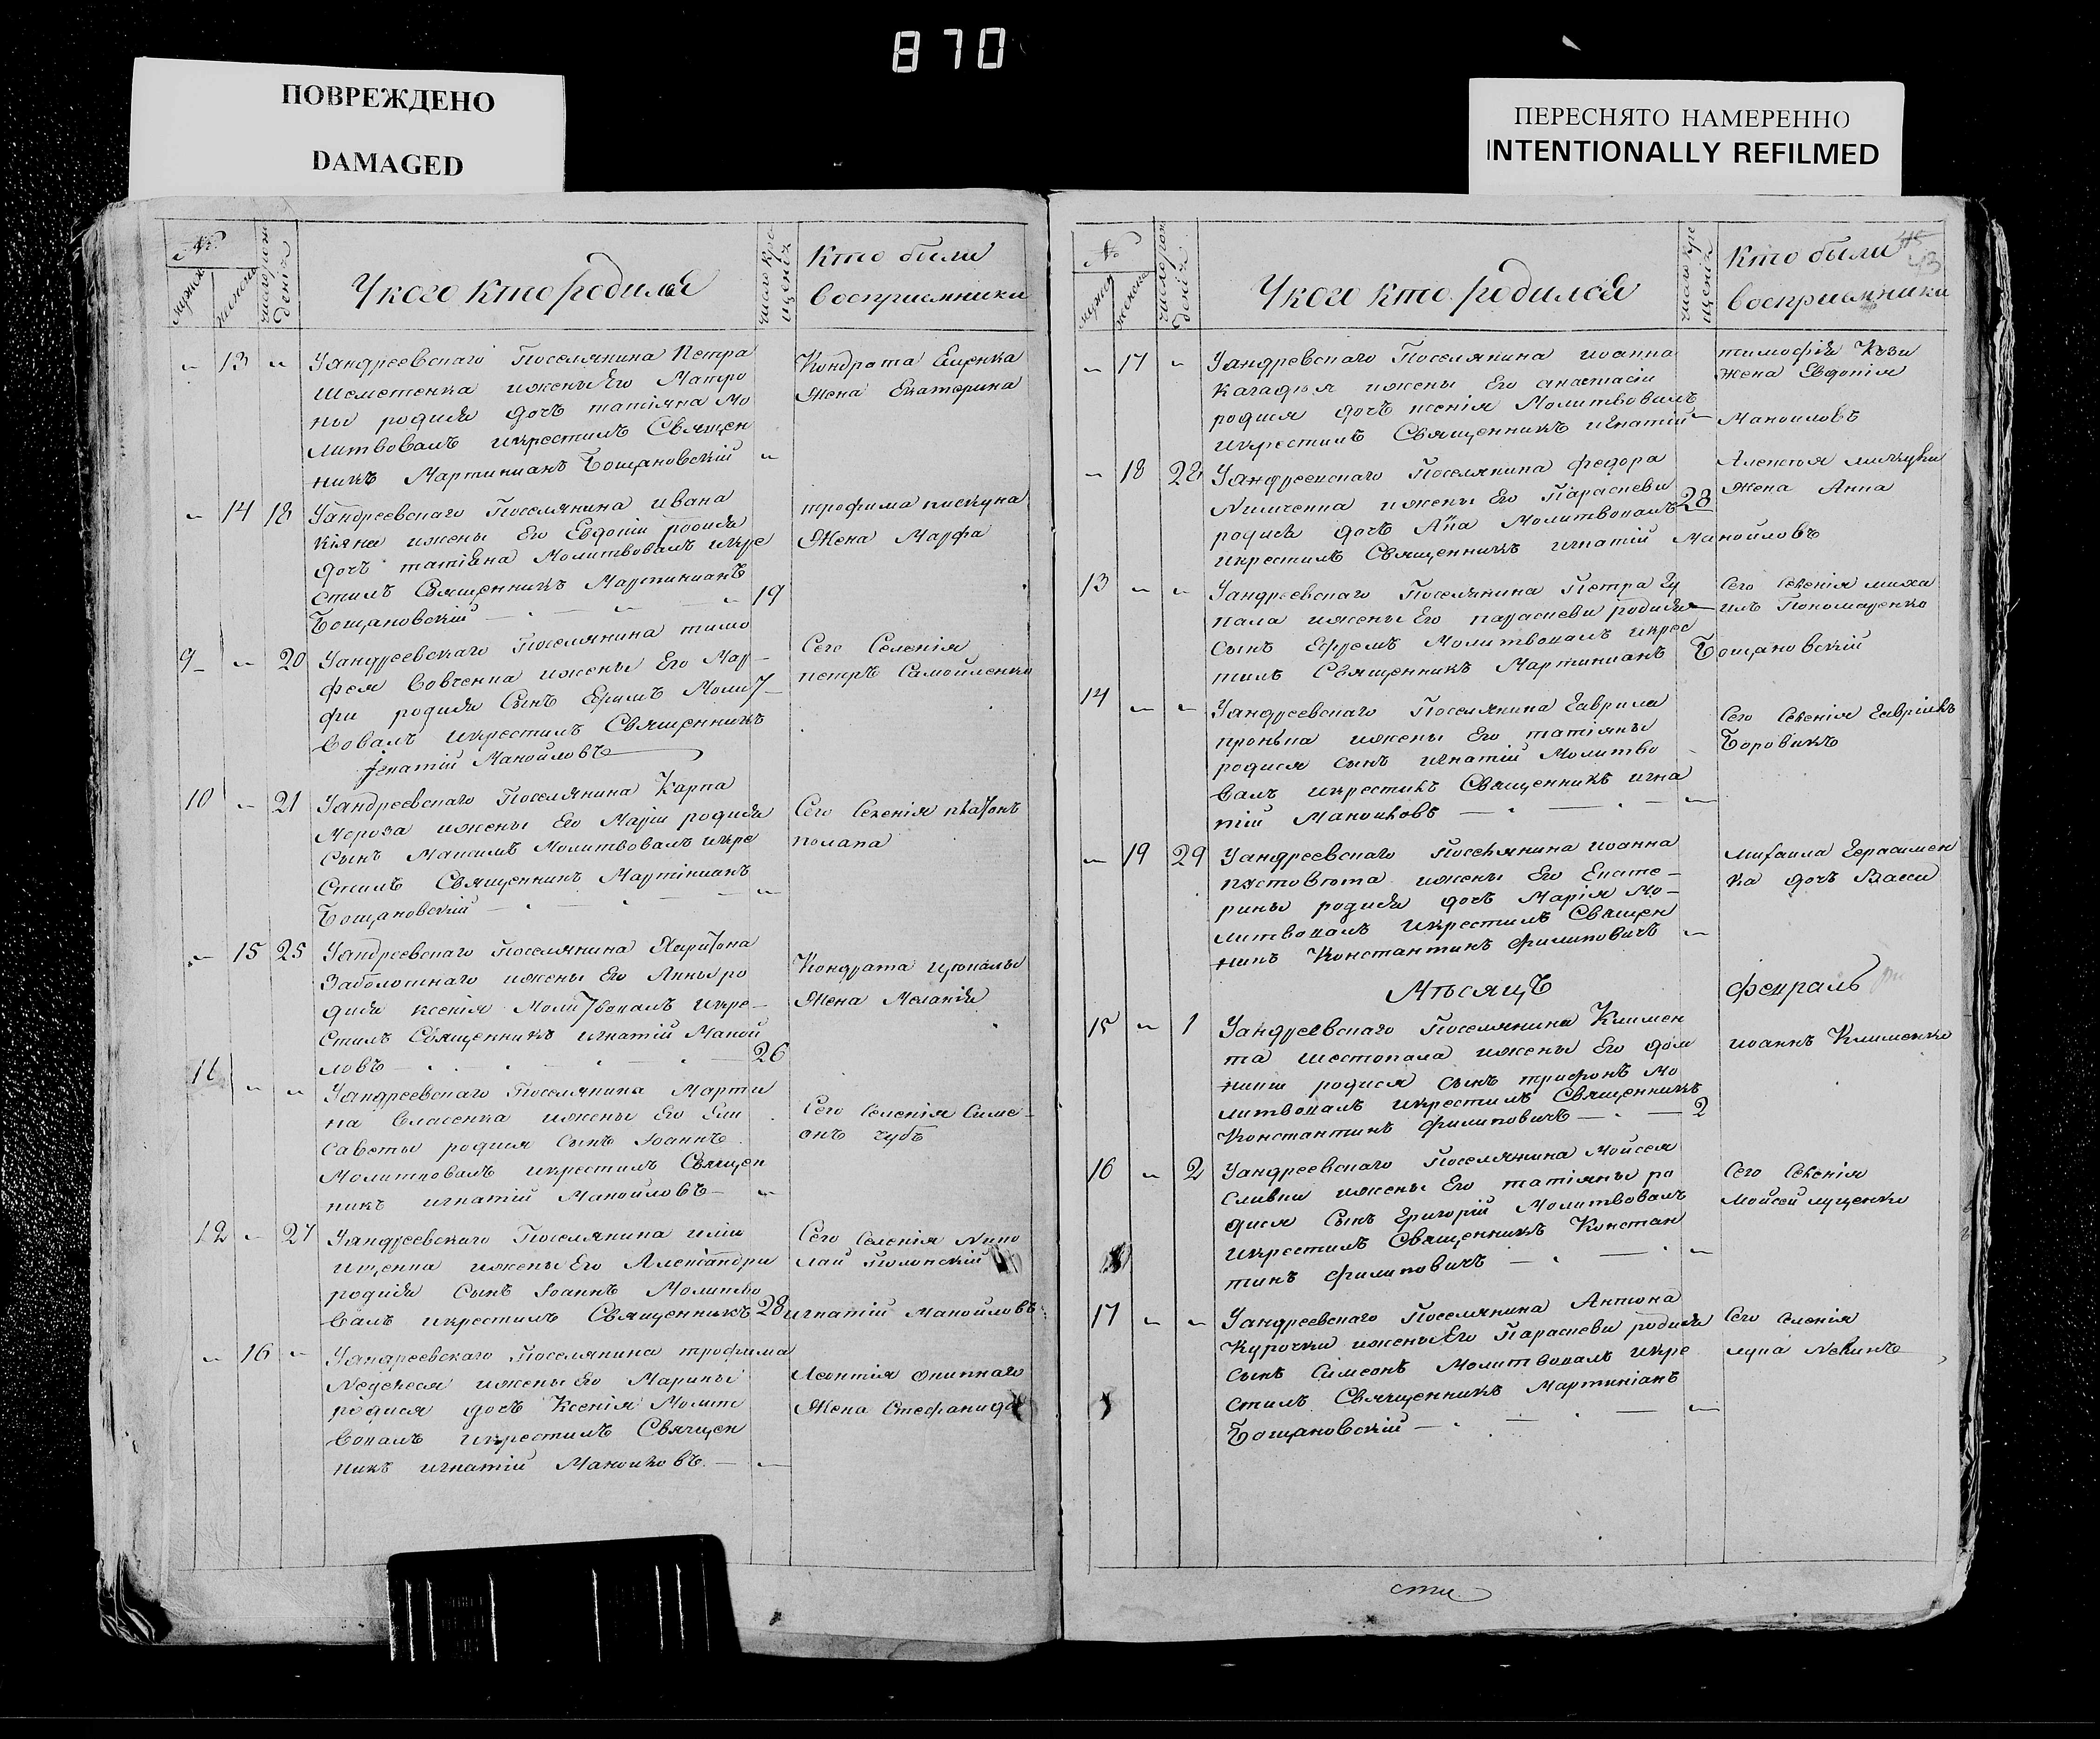 870
ПОВРЕЖДЕНО
DAMAGED
ПЕРЕСНЯТО НАМЕРЕННО
INTENTIONALLY REFILMED
№
мужеск
женска
число рож
денія
У кого кто родился
число кре
щенія
Кто были
восприемники
13
Уандреевскаго Поселянина Петра
Шеметенка ижены Его Матро
ны родися дочь татіяна Мо
литвовалъ икрестилъ Священ
никъ Мартинианъ Бощановскій
Кондрата Ещенка
Жена Екатерина
14 18
Уандреевскаго Поселянина ивана
Кіяна ижены Его Евдокіи родися
дочь татіяна Молитвовалъ икре
стилъ Священникъ Мартинианъ
Бощановскій 19
трофима пискуна
Жена Марфа
9 20
Уандреевскаго Поселянина тимо
фея Вовченка ижены Его Мар
фы родися Сынъ Ефимъ Молит
вовалъ икрестилъ Священникъ
Игнатій Манойловъ
Сего Селенія
петръ Самойленко
10 21
Уандреевскаго Поселянина Карпа
Мороза ижены Его Маріи родися
Сынъ Максимъ Молитвовалъ икре
Стилъ Священникъ Мартініанъ
Бощановскій
Сего Селенія платонъ
полапа
15 25
Уандреевскаго Поселянина Харитона
Заболотнаго ижены Его Анны ро
дися ксенія Молитвовалъ икре
Стилъ Священникъ игнатій Маной
ловъ 26
Кондрата
Жена Меланія
11
Уандреевскаго Поселянина Марти
на Власенка ижены Его Ели
Саветы родися Сынъ Іоаннъ
Молитвовалъ икрестилъ Священ
никъ игнатій Манойловъ
Сего Селенія Симе
онъ чубъ
12 27
Уандреевскаго Поселянина иліи
ищенка ижены Его Александры
родися Сынъ Іоаннъ Молитво
Валъ икрестилъ Священникъ 28 игнатій Манойловъ
Сего Селенія Нико
лай Полонскій
16
Уандреевскаго Поселянина трофима
ижены Его Марины
родися дочь Ксенія Молит
Вовалъ икрестилъ Священ
никъ игнатій Манойловъ
Леонтія
Жена Стефанида
№
мужеск
женска
число рож
денія
У кого кто родился
число кре
щенія
Кто были
восприемники
43
17
Уандреевскаго Поселянина иоанна
ижены Его анастасіи
родися дочь ксенія Молитвовалъ
икрестилъ Священникъ игнатій Манойловъ
тимофія Козы
жена Евдокія
18 28
Уандреевскаго Поселянина федора
ижены Его Параскевы
родися дочь Анна Молитвовалъ 28
икрестилъ Священникъ игнатій Манойловъ
Алексея
Жена Анна
13
Уандреевскаго Поселянина Петра Цу
пала ижены Его параскевы родися
сынъ Ефремъ Молитвовалъ икрес
тилъ Священникъ Мартинианъ Бощановскій
Сего Селенія миха
илъ Пономаренко
14
Уандреевскаго Поселянина Гаврила
пронька ижены Его татіяны
родися сынъ игнатій Молитво
валъ икрестилъ Священникъ игна
тій Манойловъ
Сего Селенія Гавріилъ
Боровикъ
19 29
Уандреевскаго Поселянина иоанна
пустовгота ижены Его Екате
рины родися дочь Марія Мо
литвовалъ икрестилъ Священ
никъ Константинъ филиповичъ
михаила Герасимен
ка дочь Васса
Мѣсяцъ
февраль
15 1
Уандреевскаго Поселянина Климен
та шестопала ижены Его дом
никіи родися сынъ трифонъ Мо
литвовалъ икрестилъ Священникъ
Константинъ филиповичъ 2
иоаннъ Клименко
16 2
Уандреевскаго Поселянина Мойсея
сливки ижены Его татіяны ро
дися Сынъ Григорій Молитвовалъ
икрестилъ Священникъ Констан
тинъ филиповичъ
Сего Селенія
Мойсей луценко
17
Уандреевскаго Поселянина Антона
Курочки ижены Его Параскевы родися
сынъ Сімеонъ Молитвовалъ икре
стилъ Священникъ Мартиніанъ
Бощановскій
Сего Селенія
лука
сти